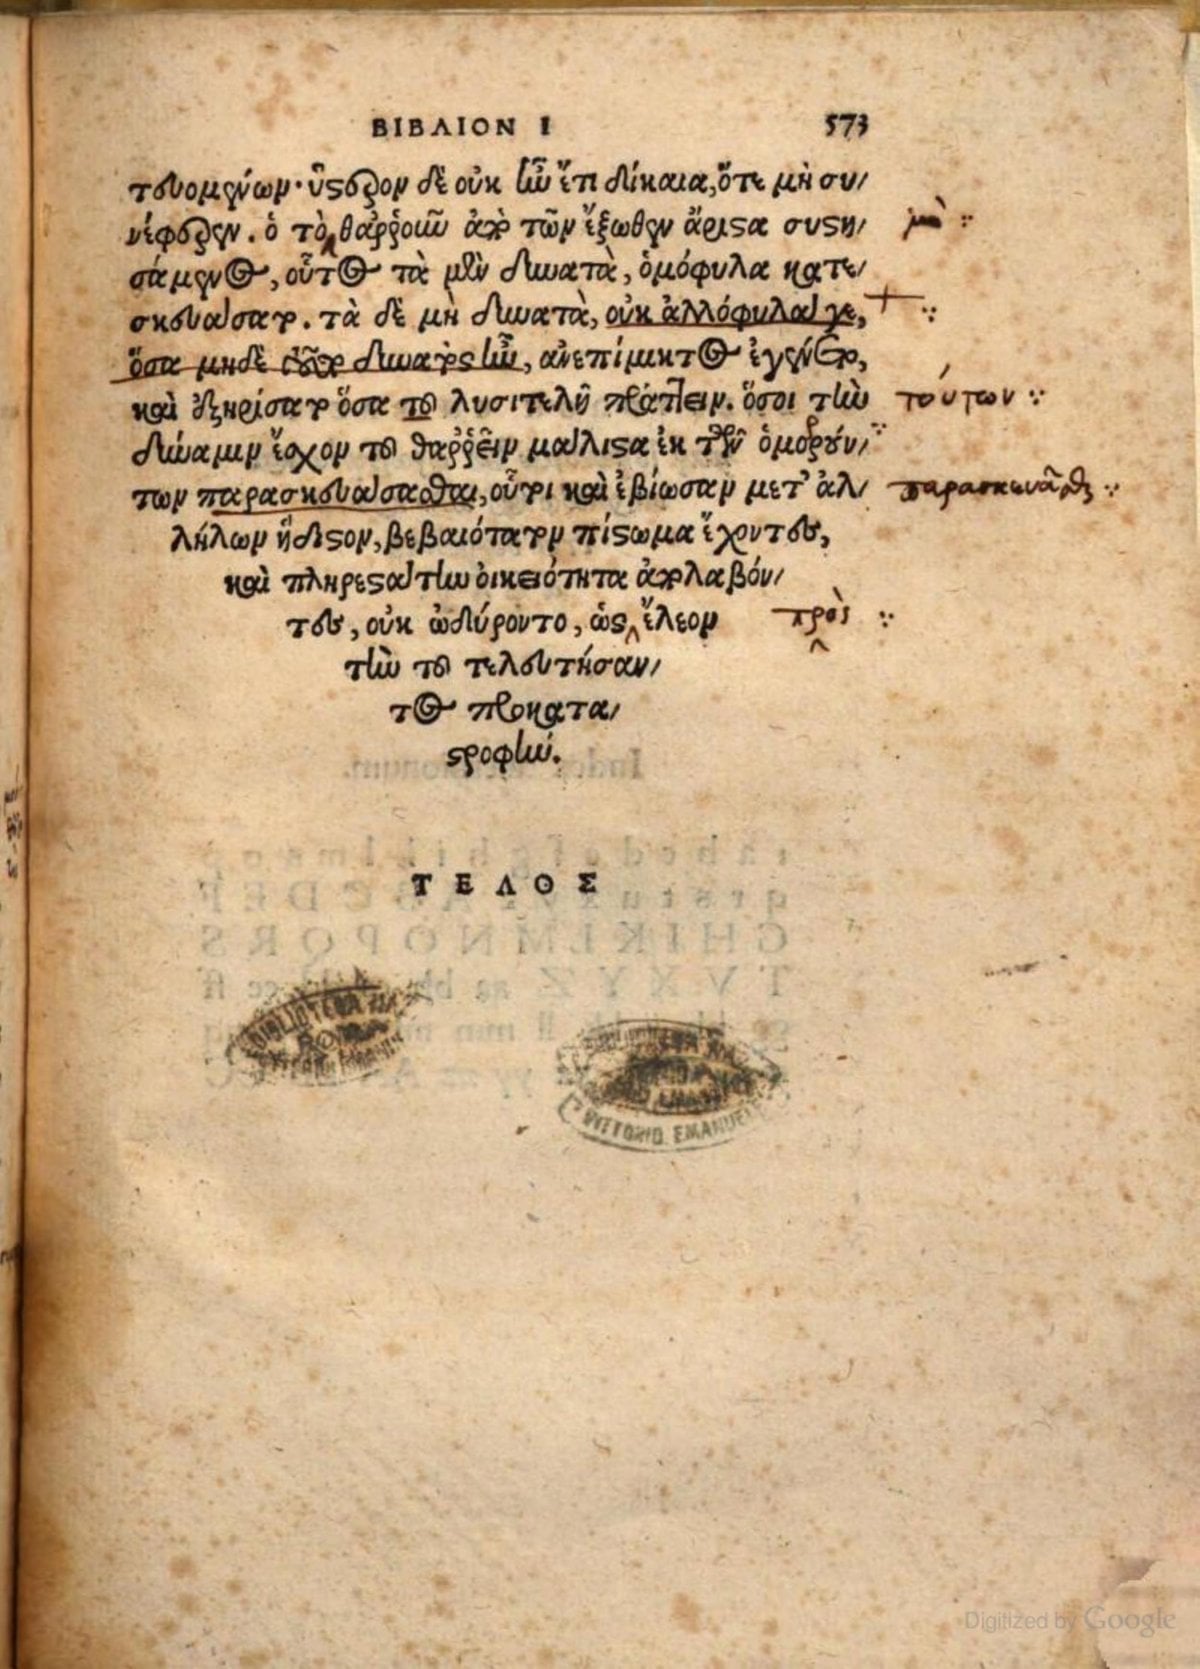 ΒΙΒΛΙΟΝ Ι 573
τευομένων· ὕστερον δὲ οὐκ ἦν ἔτι δίκαια, ὅτε μὴ συ/
νέφερεν. ὁ τὸ θαῤῥοῦν ἀπὸ τῶν ἔξωθεν ἄριστα συστη/ μὴ
σάμενος, οὗτος τὰ μὲν δυνατὰ, ὁμόφυλα κατε/
σκευάσατο. τὰ δὲ μὴ δυνατὰ, οὐκ ἀλλόφυλά γε,
ὅσα μηδὲ τοῦτο δυνατὸς ἦν, ἀνεπίμικτος ἐγένετο,
καὶ ἐξηρίσατο ὅσα τοῦ λυσιτελῆ πράττειν. ὅσοι τὴν τούτων
δύναμιν ἔσχον τοῦ θαῤῥεῖν μάλιστα ἐκ τῶν ὁμορούν/
των παρασκευάσασθαι, οὗτοι καὶ ἐβίωσαν μετ' ἀλ/ παρασκευᾶσθαι
λήλων ἥδιστον, βεβαιότατον πίστωμα ἔχοντες,
καὶ πληρεστάτην οἰκειότητα ἀπολαβόν/
τες, οὐκ ὠδύροντο, ὡς ἔλεον πρὸς
τὴν τοῦ τελευτήσαν/
τος προκατα/
στροφήν.
ΤΕΛΟΣ
BIBLIOTECA NAZ
ROMA
VITTORIO EMANUELE
BIBLIOTECA NAZ
ROMA
VITTORIO EMANUELE
Digitized by Google